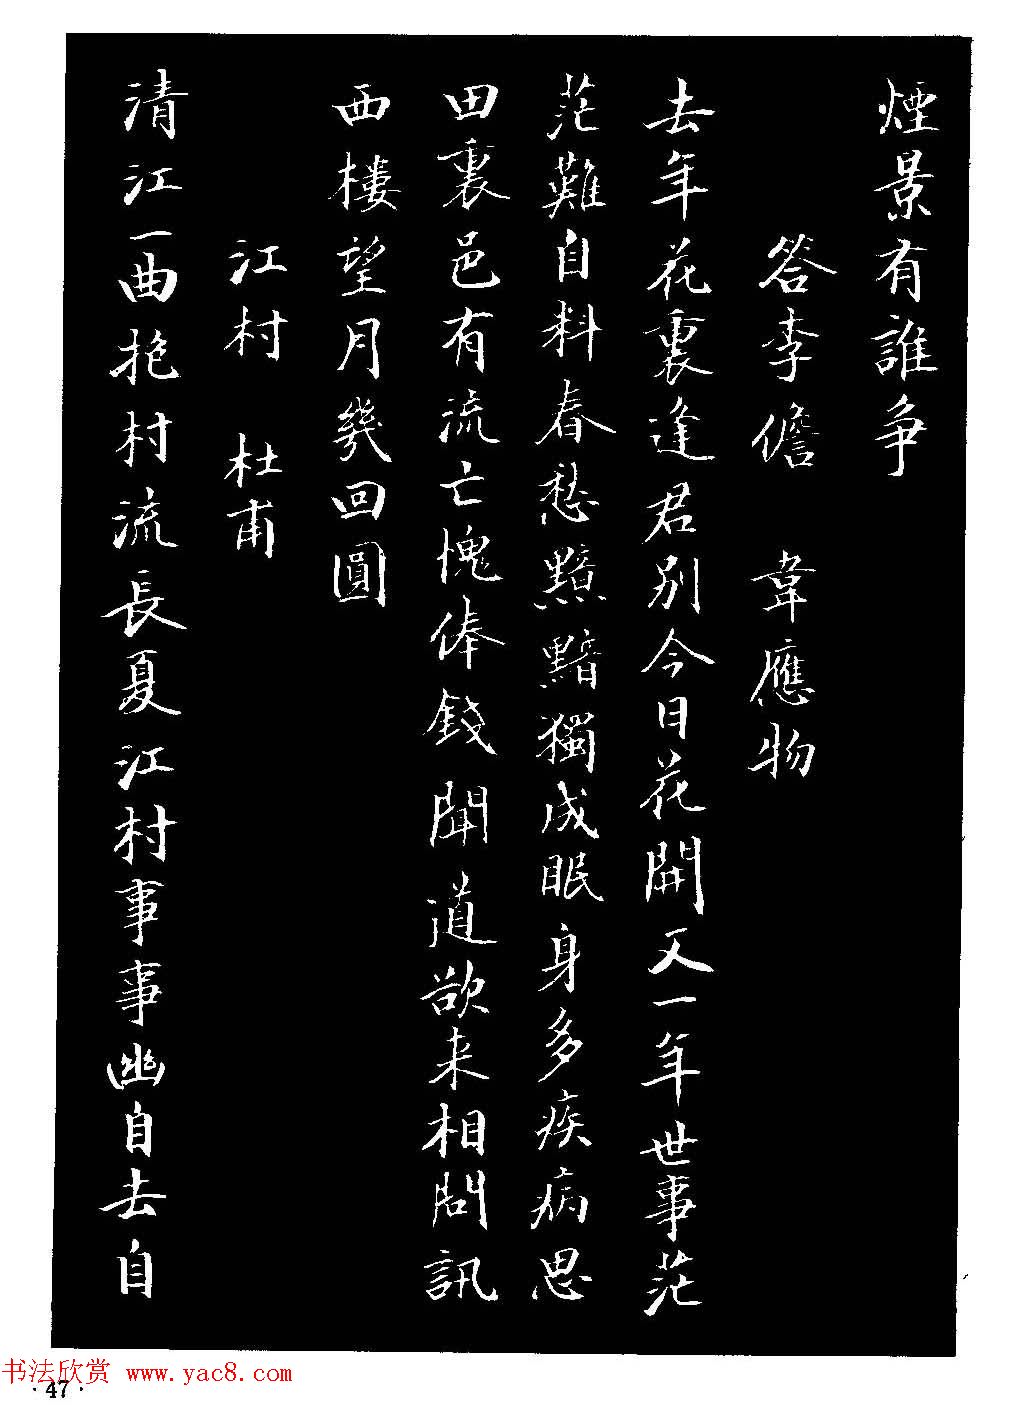 煙景有誰争
答李儋 韋應物
去年花裏逢君別今日花開又一年世事茫
茫難自料春愁黯黯獨成眠身多疾病思
田裏邑有流亡愧俸錢聞道欲来相問訊
西樓望月幾回圓
江村 杜甫
清江一曲抱村流長夏江村事事幽自去自
书法欣赏 www.yac8.com
·47·